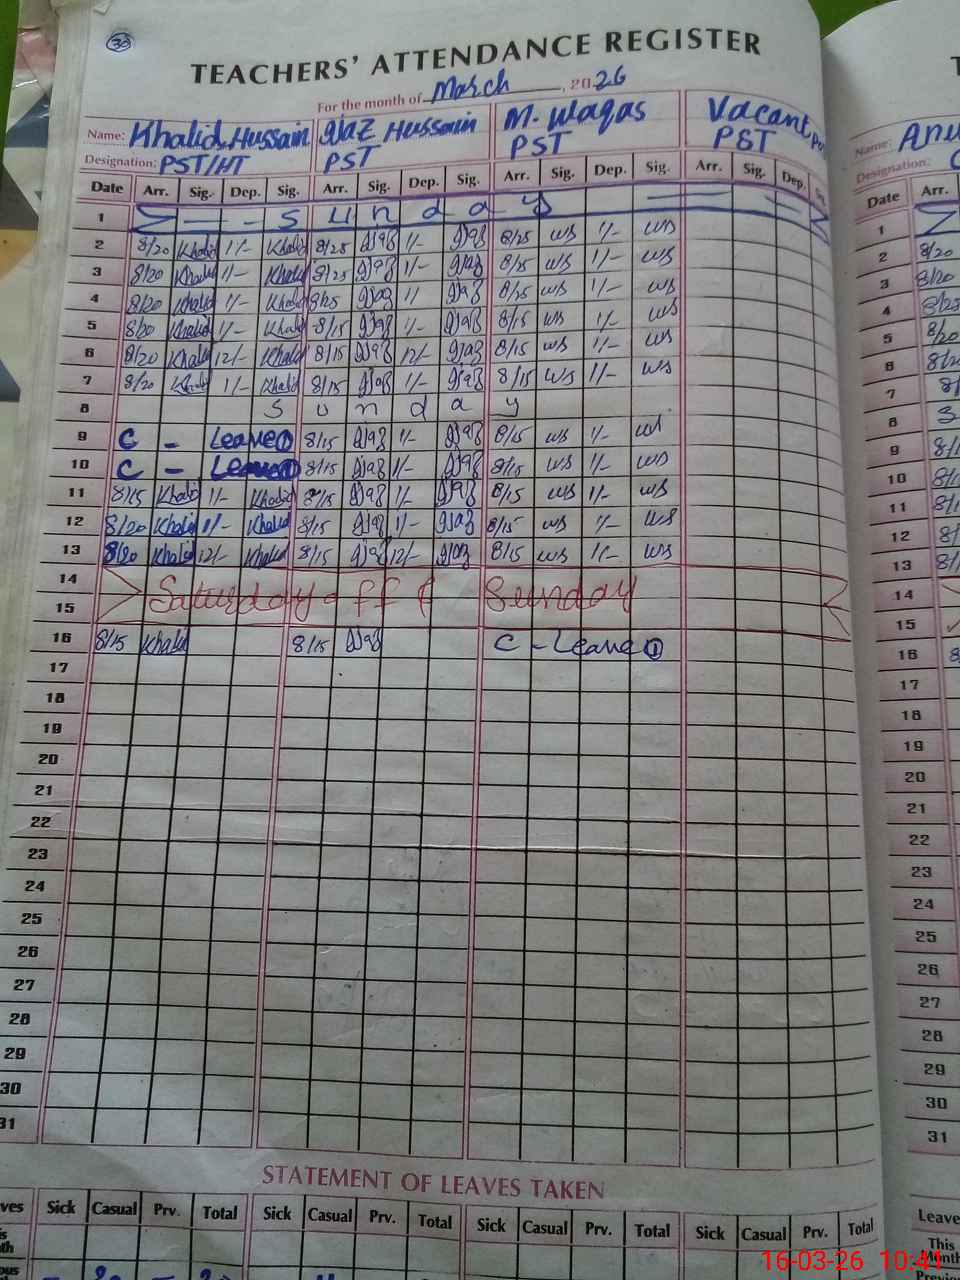 30
TEACHERS' ATTENDANCE REGISTER
For the month of March, 2026
Name: Khalid Hussain Ijaz Hussain M. Waqas Vacant
Designation: PST/HT PST PST PST
Date Arr. Sig. Dep. Sig. Arr. Sig. Dep. Sig. Arr. Sig. Dep. Sig. Arr. Sig. Dep. Sig.
1 S u n d a y
2 8/20 Khalid 1/- Khalid 8/25 Ijaz 1/- Ijaz 8/25 WS 1/- WS
3 8/20 Khalid 1/- Khalid 8/25 Ijaz 1/- Ijaz 8/25 WS 1/- WS
4 8/20 Khalid 1/- Khalid 8/25 Ijaz 1/ Ijaz 8/25 WS 1/- WS
5 8/20 Khalid 1/- Khalid 8/15 Ijaz 1/- Ijaz 8/15 WS 1/- WS
6 8/20 Khalid 12/- Khalid 8/15 Ijaz 12/- Ijaz 8/15 WS 1/- WS
7 8/20 Khalid 1/- Khalid 8/15 Ijaz 1/- Ijaz 8/15 WS 1/- WS
8 S u n d a y
9 C - Leave 1 8/15 Ijaz 1/- Ijaz 8/15 WS 1/- WS
10 C - Leave 8/15 Ijaz 1/- Ijaz 8/15 WS 1/- WS
11 8/15 Khalid 1/- Khalid 8/15 Ijaz 1/- Ijaz 8/15 WS 1/- WS
12 8/20 Khalid 1/- Khalid 8/15 Ijaz 1/- Ijaz 8/15 WS 1/- WS
13 8/20 Khalid 12/- Khalid 8/15 Ijaz 12/- Ijaz 8/15 WS WS
14
Saturday off & Sunday
15
16 8/15 Khalid 8/15 Ijaz C - Leave 1
17
18
19
20
21
22
23
24
25
26
27
28
29
30
31
STATEMENT OF LEAVES TAKEN
Sick Casual Prv. Total Sick Casual Prv. Total Sick Casual Prv. Total Sick Casual Prv. Total
Name:
Designation:
Date Arr.
1
2 8/20
3 8/20
4
5 8/20
6 8/20
7
8
9
10
11
12
13
14
15
16
17
18
19
20
21
22
23
24
25
26
27
28
29
30
31
Leave
This
Month
16-03-26 10:41